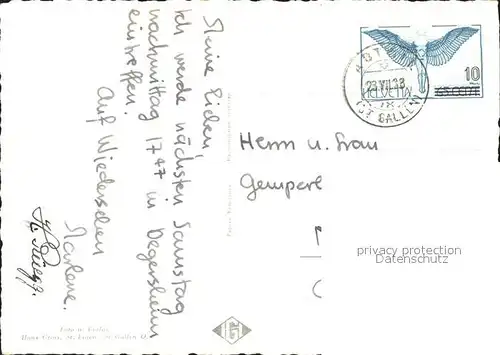 Meine Lieben,
Ich werde nächsten Samstag
nachmittag 17⁴⁷ in Degersheim
eintreffen.
Auf Wiedersehen
Marlene.
Herrn u. Frau
Gemperl
10
HELVETIA
23.VII.38
(ST. GALLEN)
Foto u. Verlag
Hans Gross, St. Fiden - St. Gallen O.
G
privacy protection
Datenschutz